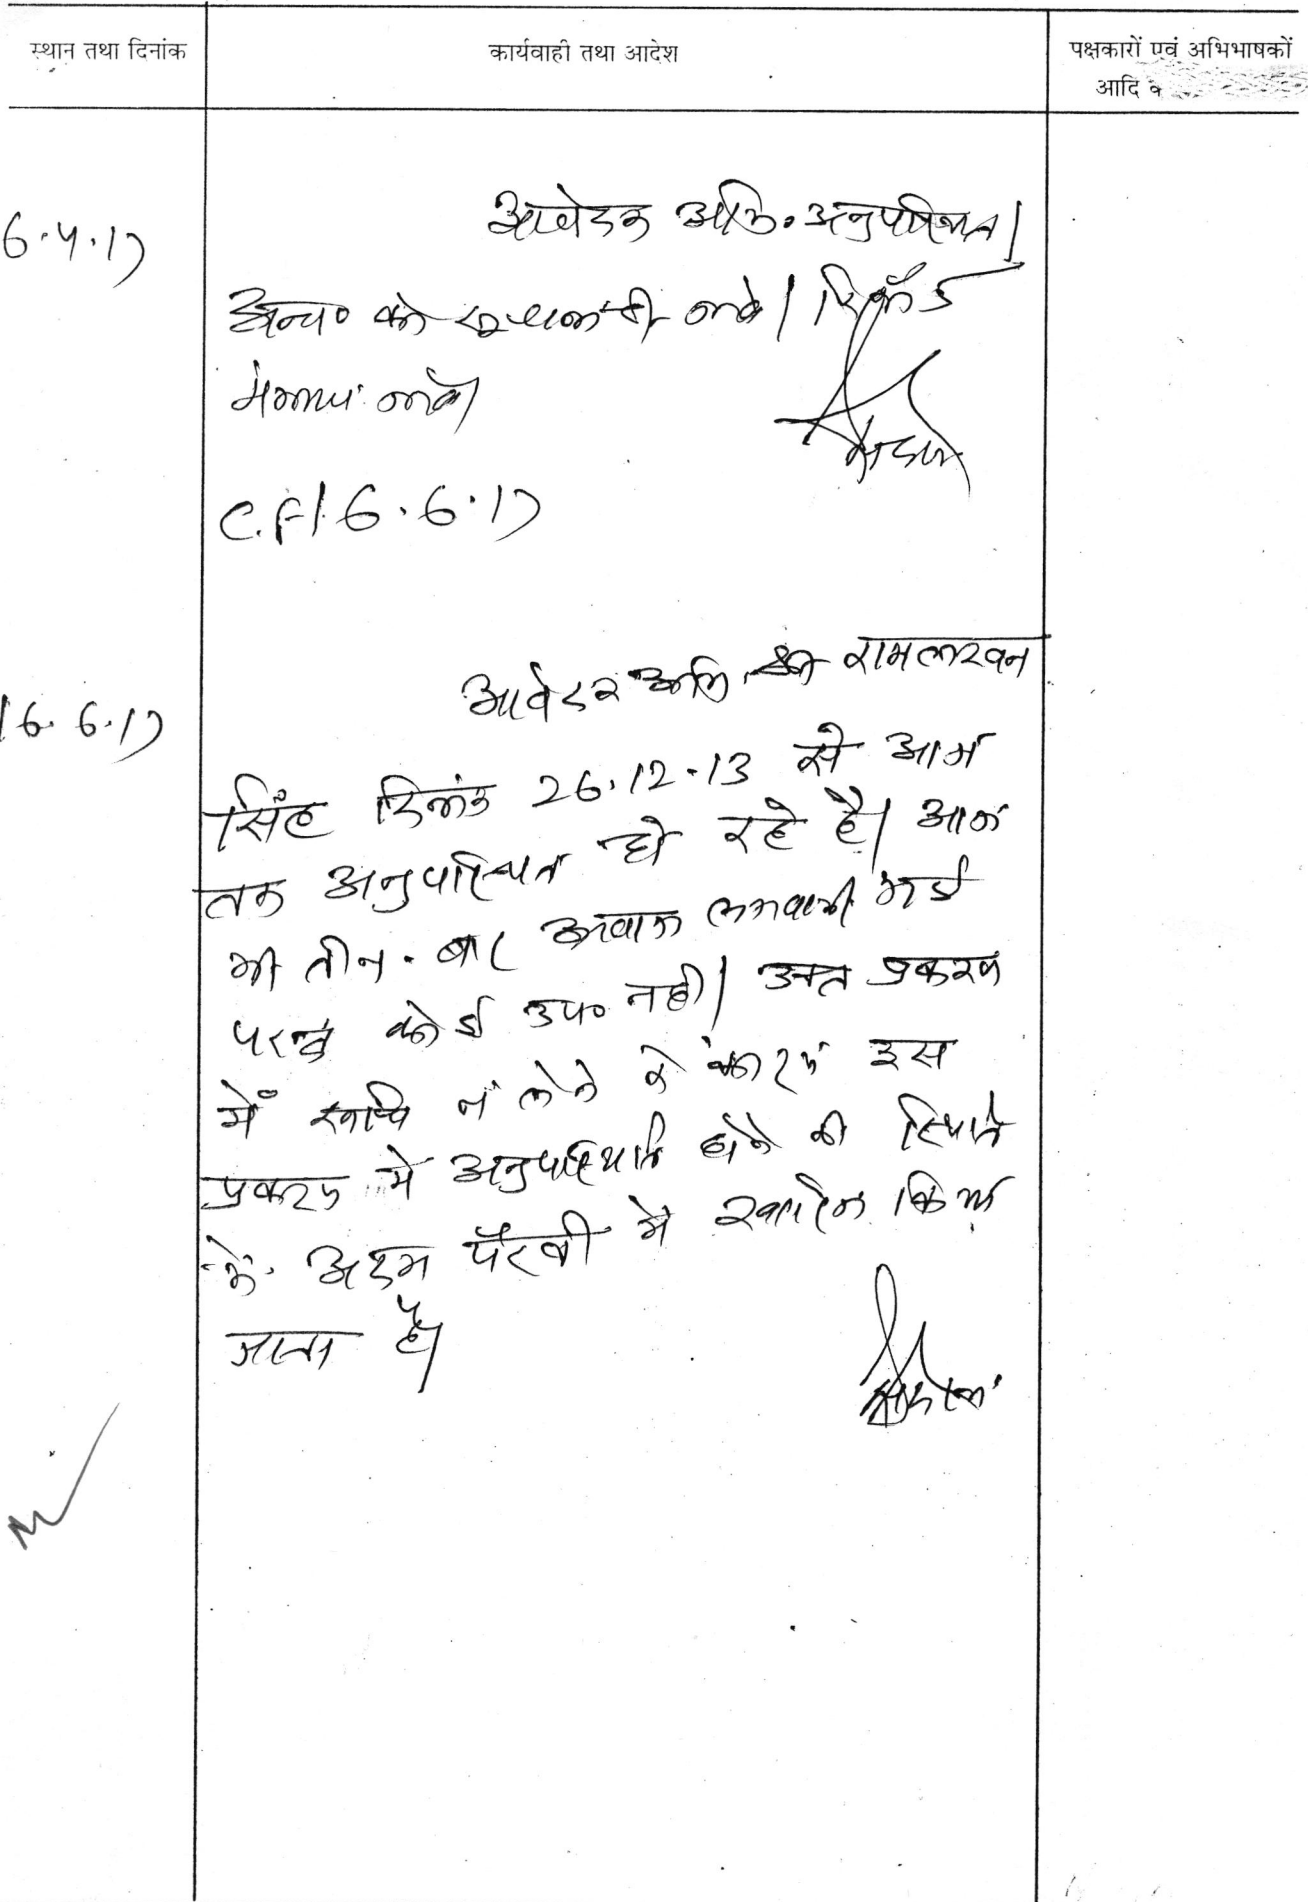 स्थान तथा दिनांक
कार्यवाही तथा आदेश
पक्षकारों एवं अभिभाषकों
आदि
6.4.17
आवेदक अभि. अनुपस्थित।
अना० को सूचना दी जावे। रिकॉर्ड
मंगाया जावे।
C.F. 16.6.17
16.6.17
आवेदक अभि. श्री रामलखन
सिंह दिनांक 26.12.13 से आज
तक अनुपस्थित हो रहे है। आज
भी तीन बार आवाज लगवायी गई
परन्तु कोई उप० नहीं। उक्त प्रकरण
में रूचि न लेने के कारण इस
प्रकरण में अनुपस्थिति होने की स्थिति
में अदम पैरवी में खारिज किया
जाता है।